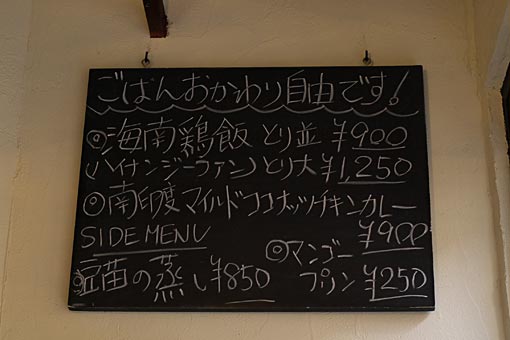 ごはんおかわり自由です!
◎海南鶏飯 とり並 ¥900
(ハイナンジーファン) とり大 ¥1,250
◎南印度マイルドココナッツチキンカレー
¥900
SIDE MENU
◎豆苗の蒸し ¥850
◎マンゴー
プリン ¥250